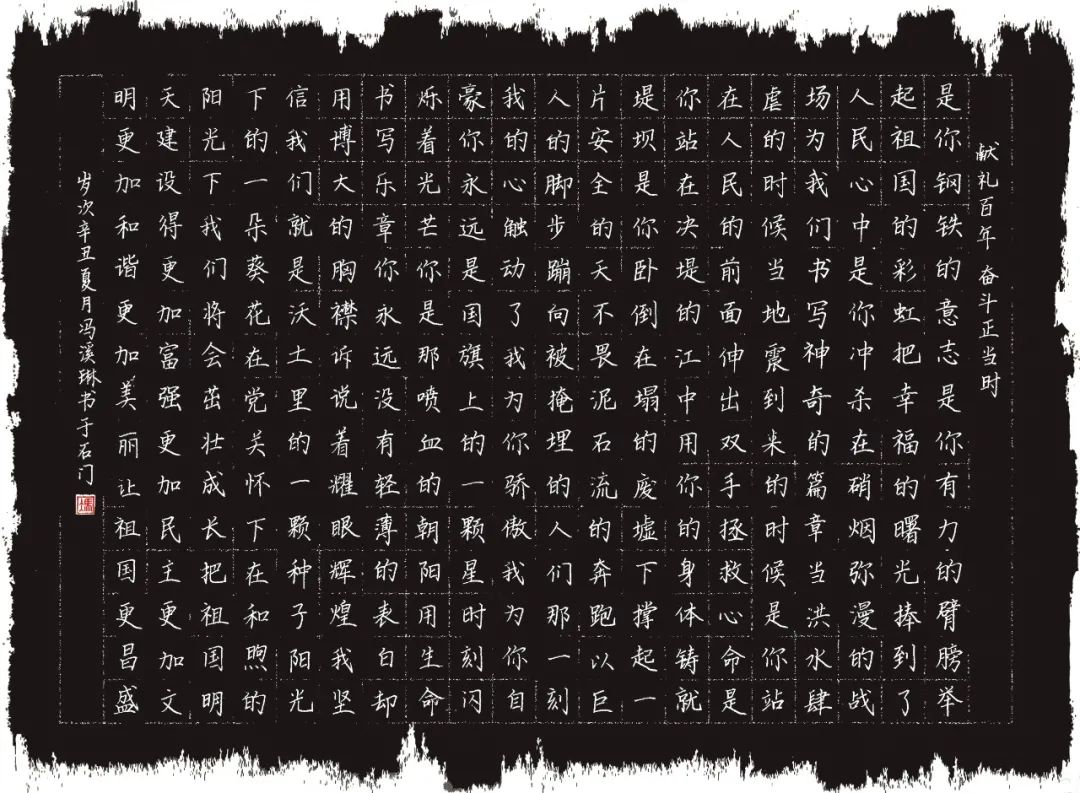 献礼百年 奋斗正当时
是你钢铁的意志是你有力的臂膀举
起祖国的彩虹把幸福的曙光捧到了
人民心中是你冲杀在硝烟弥漫的战
场为我们书写神奇的篇章当洪水肆
虐的时候当地震到来的时候是你站
在人民的前面伸出双手拯救心命是
你站在决堤的江中用你的身体铸就
堤坝是你卧倒在塌的废墟下撑起一
片安全的天不畏泥石流的奔跑以巨
人的脚步蹦向被掩埋的人们那一刻
我的心触动了我为你骄傲我为你自
豪你永远是国旗上的一颗星时刻闪
烁着光芒你是那喷血的朝阳用生命
书写乐章你永远没有轻薄的表白却
用博大的胸襟诉说着耀眼辉煌我坚
信我们就是沃土里的一颗种子阳光
下的一朵葵花在党关怀下在和煦的
阳光下我们将会茁壮成长把祖国明
天建设得更加富强更加民主更加文
明更加和谐更加美丽让祖国更昌盛
岁次辛丑夏月冯溪琳书于石门